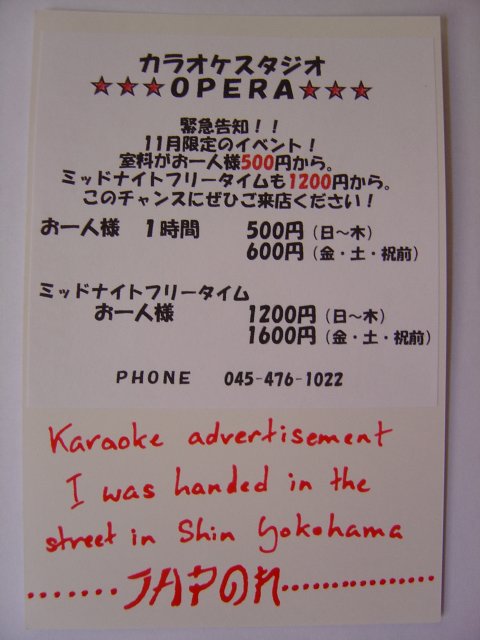 カラオケスタジオ
★★★OPERA★★★
緊急告知！！
11月限定のイベント！
室料がお一人様500円から。
ミッドナイトフリータイムも1200円から。
このチャンスにぜひご来店ください！
お一人様 1時間 500円（日～木）
600円（金・土・祝前）
ミッドナイトフリータイム
お一人様 1200円（日～木）
1600円（金・土・祝前）
PHONE 045-476-1022
Karaoke advertisement
I was handed in the
street in Shin Yokohama
.......JAPOn................